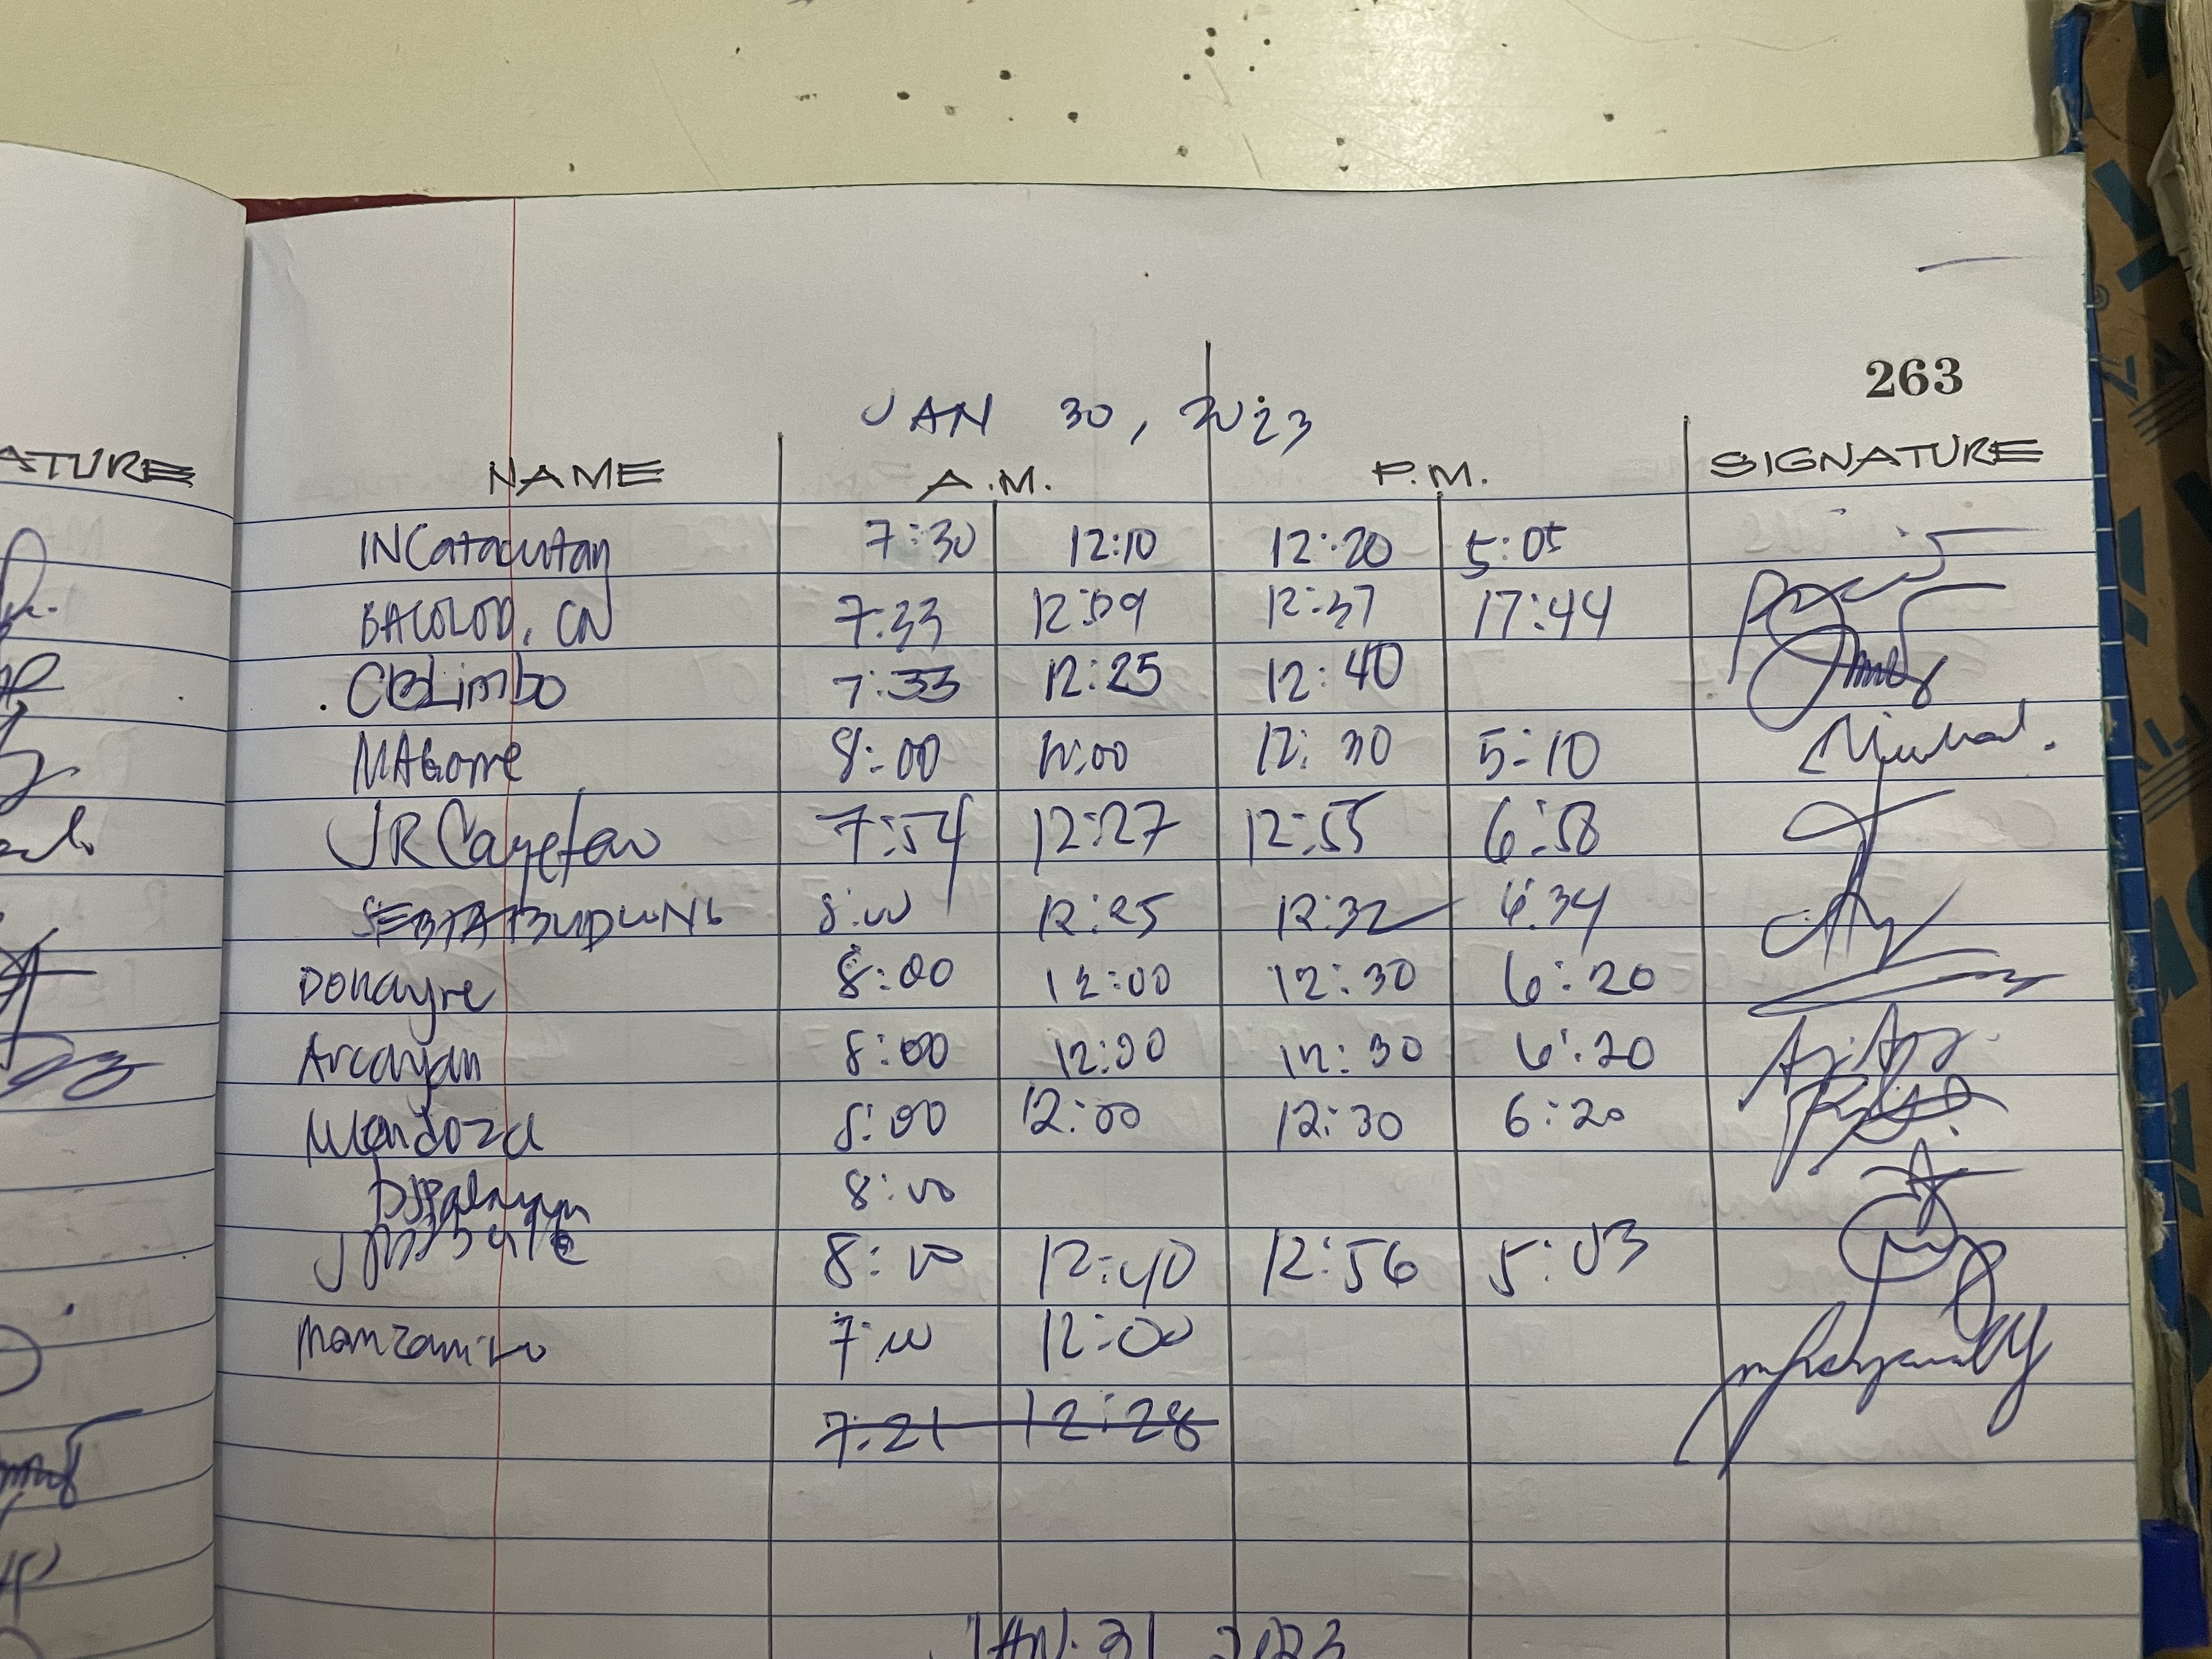 263
JAN 30, 2023
ATURE NAME A.M. P.M. SIGNATURE
INCatacutan 7:30 12:10 12:20 5:05
BACOLOD, CN 7:33 12:09 12:37 17:44
CBLimbo 7:33 12:25 12:40
8:00 12:30 5:10
JR Cayetano 7:54 12:27 12:55 6:58
8:00 12:25 12:32 6:34
Donayre 8:00 12:00 12:30 6:20
Arcayan 8:00 12:00 12:30 6:20
Mendoza 8:00 12:00 12:30 6:20
8:00
8:00 12:40 12:56 5:03
Manzanero 7:00 12:00
7:21 12:28
JAN. 31 2023